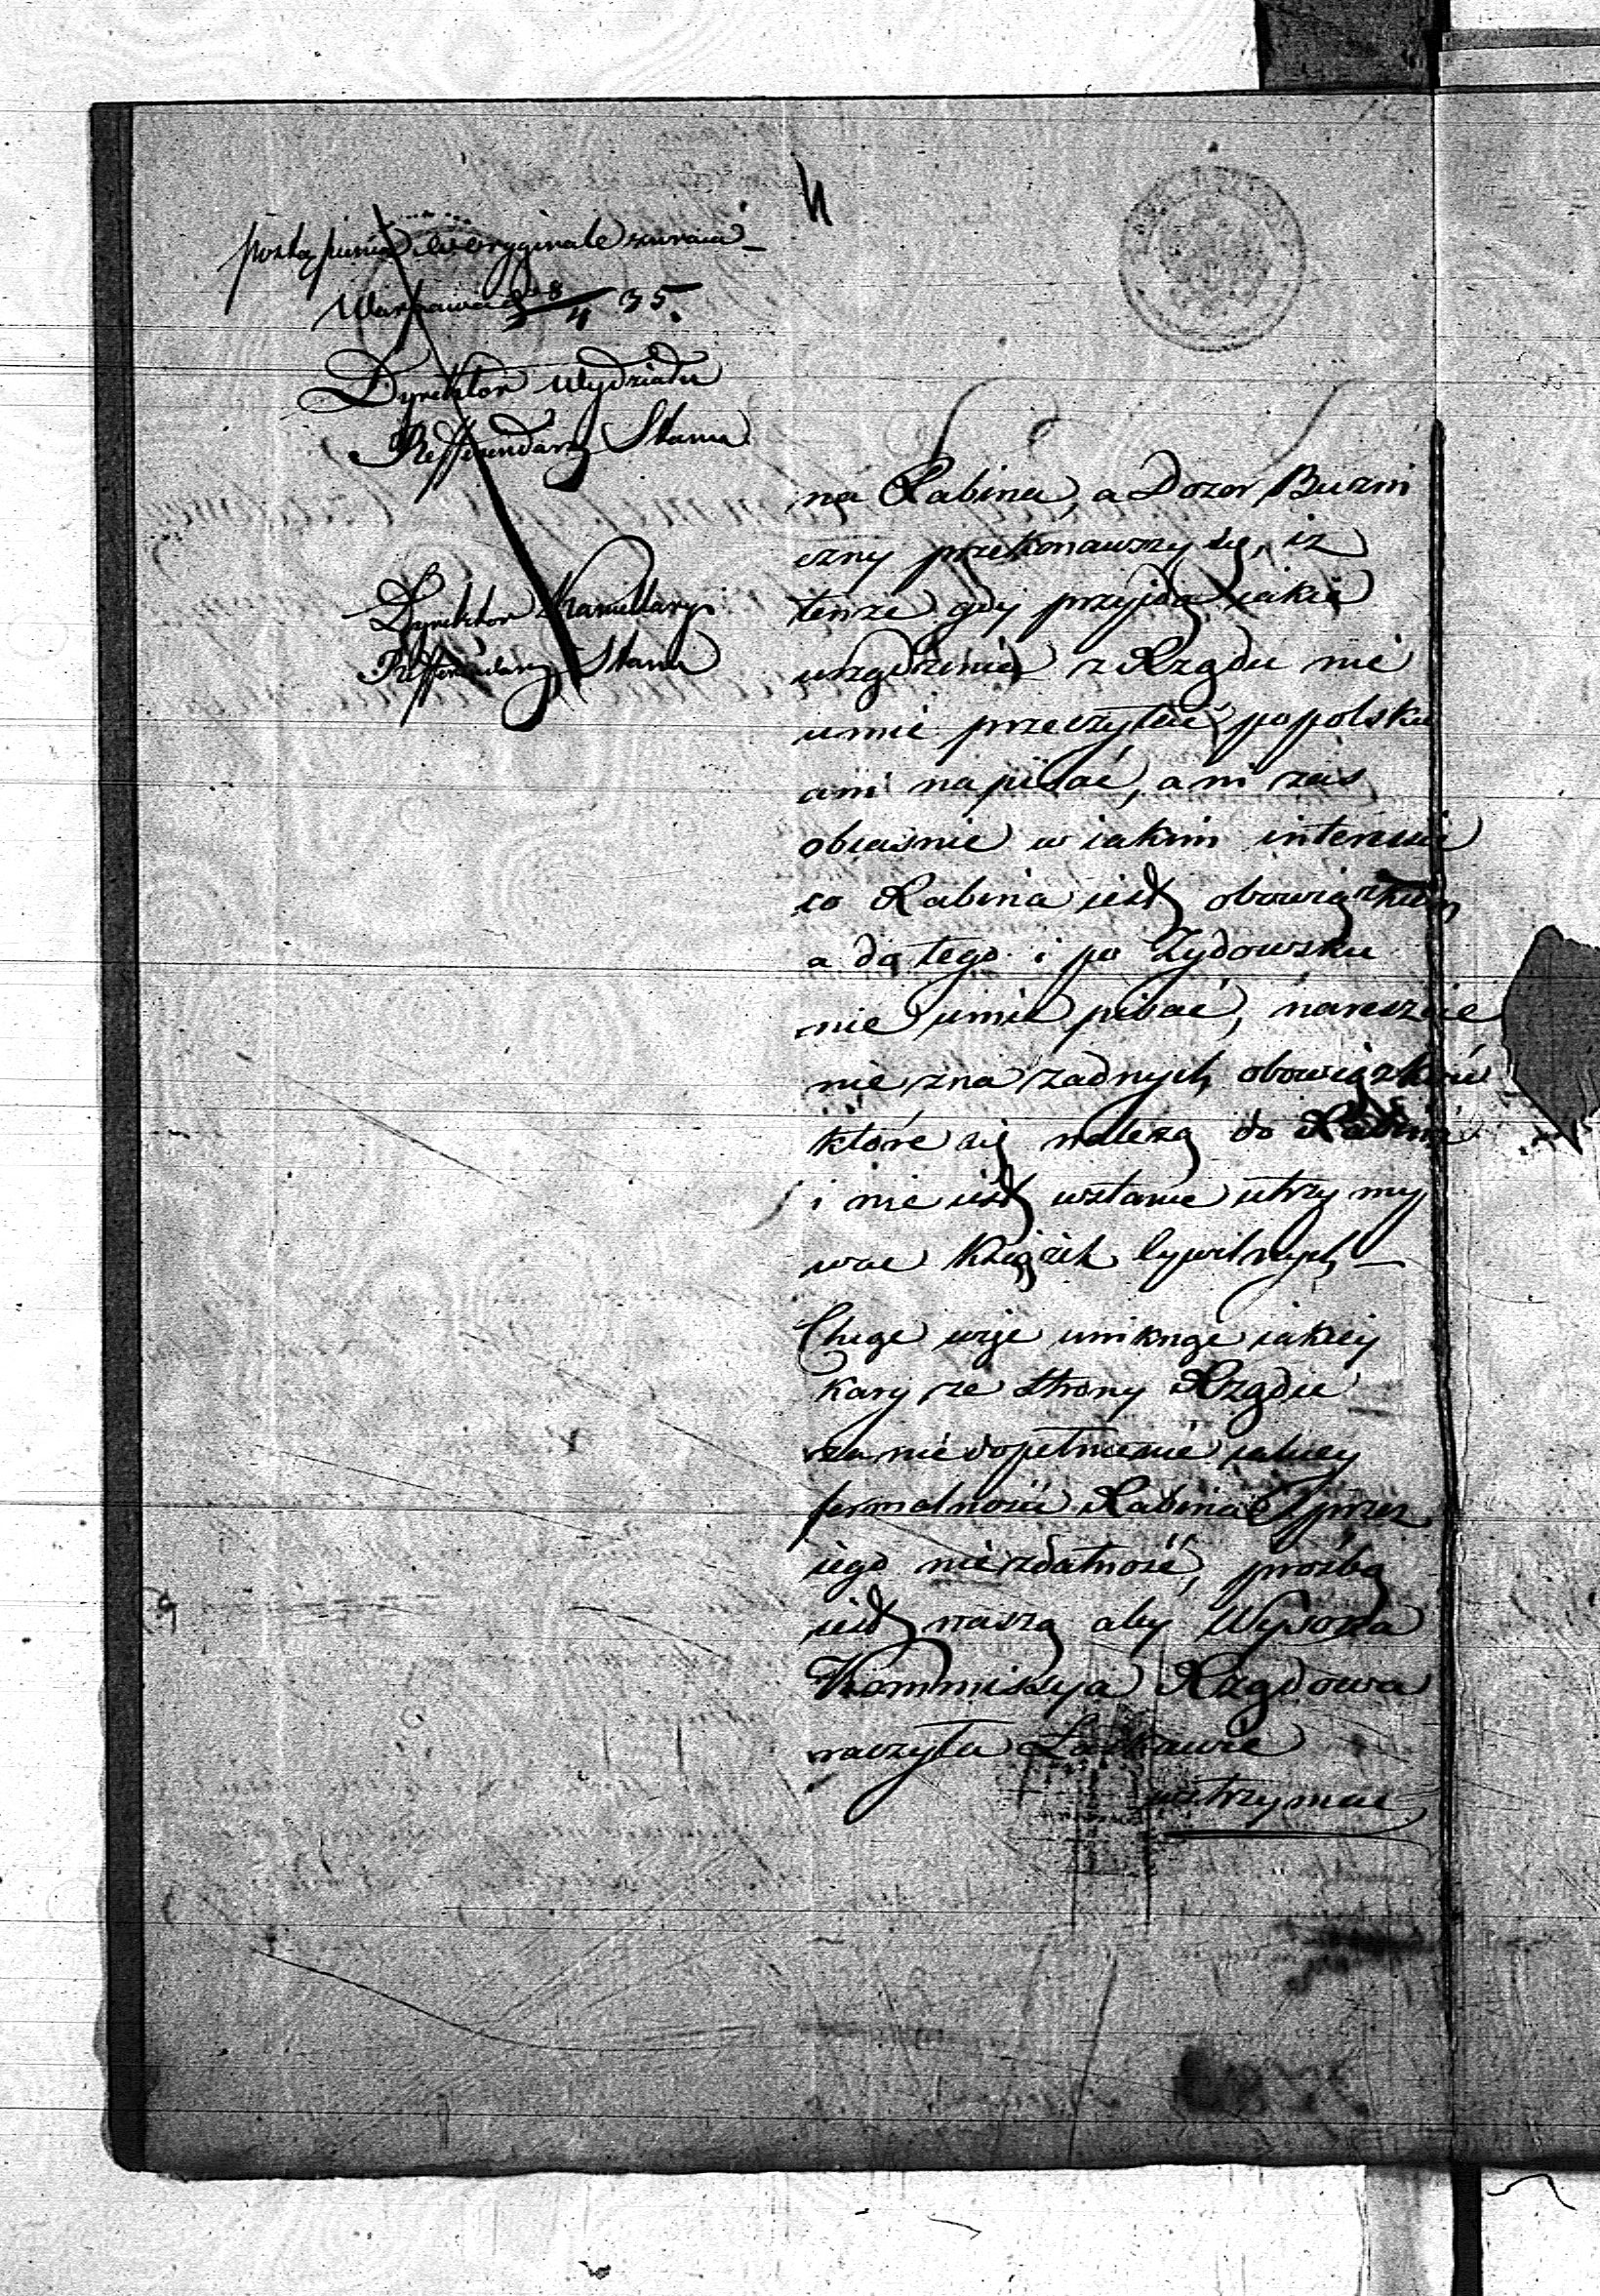 postąpienia w oryginale zwraca
Warszawa d 8/4 35.
Dyrektor Wydziału
Refferendarz Stanu
Dyrektor Kancellaryi
Refferendarz Stanu
na Rabina, a Dozor Buzni
czny przekonawszy się, iz
tenze gdy przyjdą iakie
urządzenia z Rządu nie
umie przeczytać po polsku
ani napisać, ani zas
obiasnie w iakim interessie
co Rabina iest obowiązkiem
a do tego i po Zydowsku
nie umie pisać, nareszcie
nie zna zadnych obowiązków
które się należą do Rabina
i nie iest wstanie utrzymy
wac Książek Cywilnych —
Chcąc więc uniknąc iakiey
kary ze strony Rządu
za niedopełnienie iakiey
formalności Rabina przez
iego niezdatność, prośbą
iest naszą aby Wysoka
Kommissya Rządowa
raczyła Łaskawie
wstrzymac